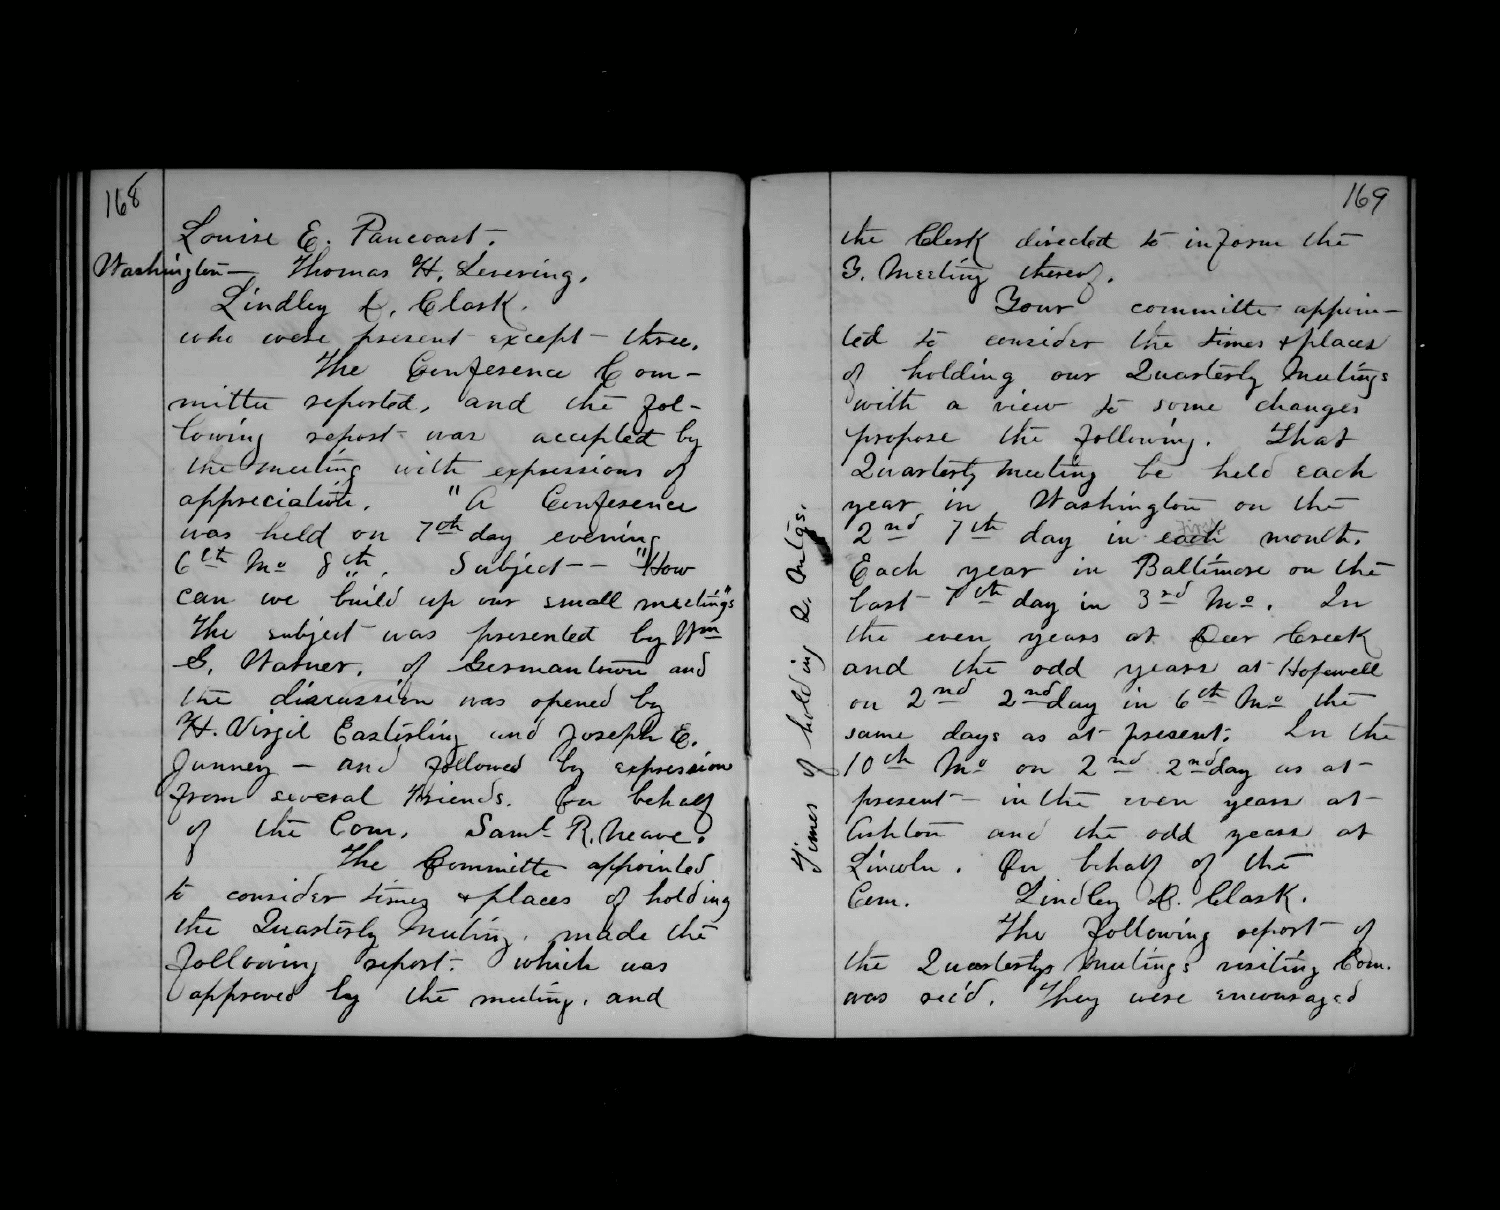 168
Louise E. Pancoast.
Washington — Thomas H. Levering.
Lindley D. Clark.
who were present except three.
The Conference Com-
mitte reported, and the fol-
lowing report was accepted by
the meeting with expressions of
appreciation. "A Conference
was held on 7th day evening
6th Mo 8th. Subject -- "How
can we build up our small meetings"
The subject was presented by Wm
G. Warner, of Germantown and
the discussion was opened by
H. Virgil Easterling and Joseph E.
Janney — and followed by expression
from several Friends. On behalf
of the Com. Saml R. Neave.
The Committe appointed
to consider times & places of holding
the Quarterly Meeting, made the
following report. which was
approved by the meeting, and
169
Times of holding Q. Mtgs.
the Clerk directed to inform the
Y. Meeting thereof.
Your committe appoin-
ted to consider the times & places
of holding our Quarterly Meetings
with a view to some changes
propose the following. That
Quarterly Meeting be held each
year in Washington on the
first
2nd 7th day in each month.
Each year in Baltimore on the
last 7th day in 3rd Mo. In
the even years at Deer Creek
and the odd years at Hopewell
on 2nd 2nd day in 6th Mo the
same days as at present. In the
10th Mo on 2nd 2nd day as at
present — in the even years at
Ashton and the odd years at
Lincoln. On behalf of the
Com. Lindley D. Clark.
The following report of
the Quarterlys Meetings visiting Com.
was rec'd. They were encouraged